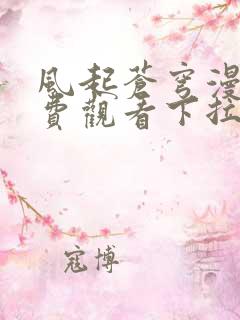 風起蒼穹漫
費觀看下拉
寇博